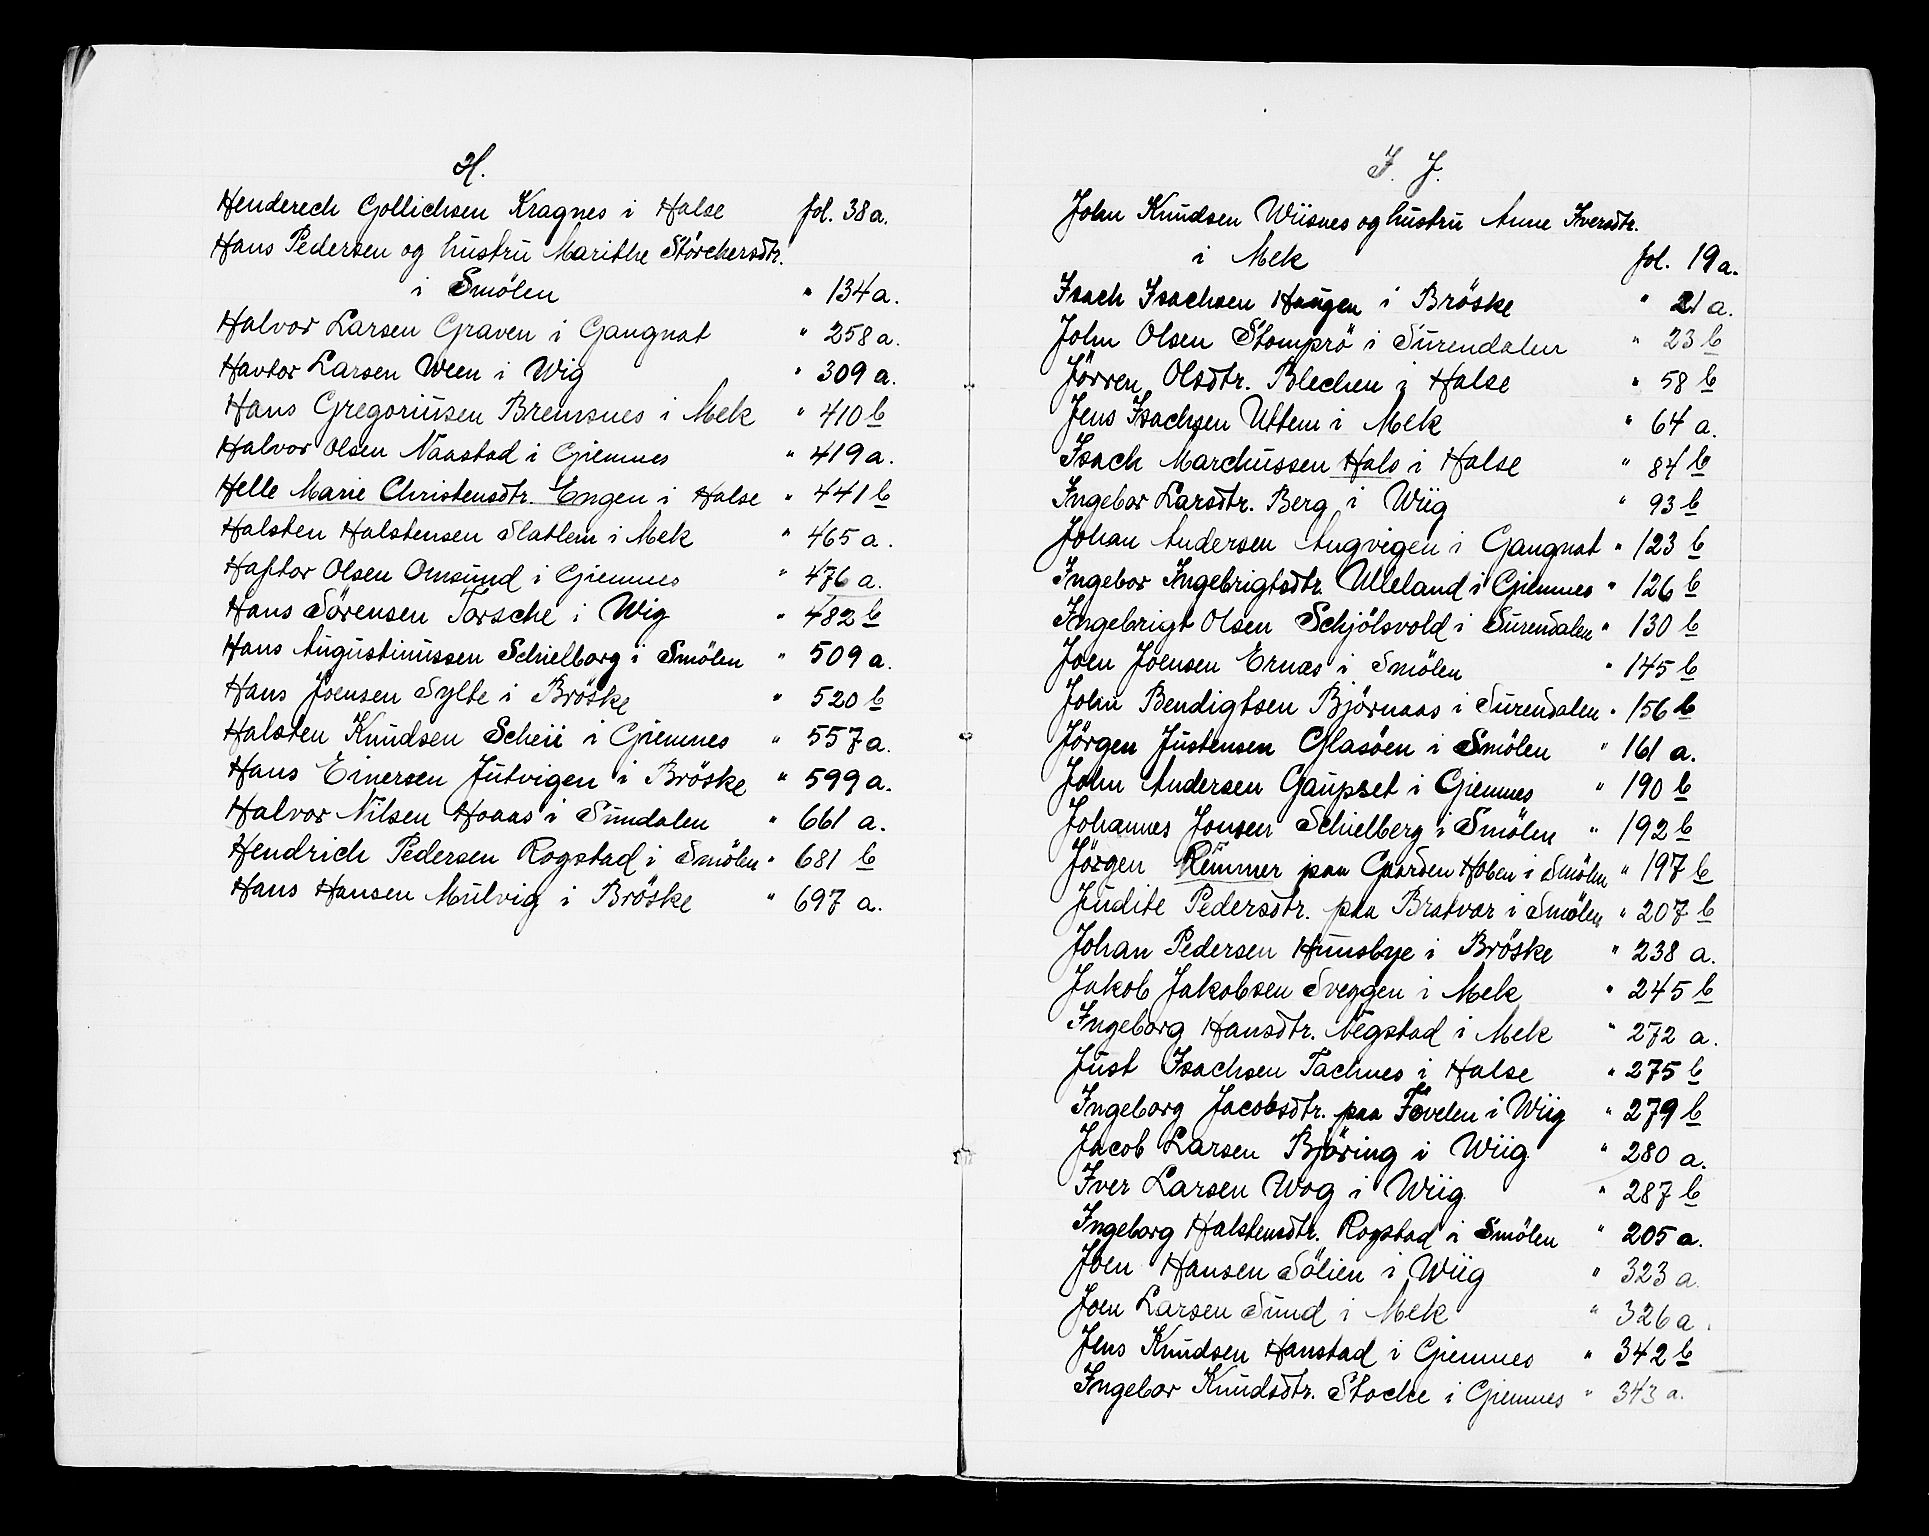 H.
Henderech Gollichsen Kragnes i Halse fol. 38 a.
Hans Pedersen og hustru Marithe Störchersdtr.
i Smölen " 134 a.
Halvor Larsen Graven i Gangnat " 258 a.
Havtor Larsen Ween i Wig " 309 a.
Hans Gregoriusen Bremsnes i Mek " 410 b
Halvor Olsen Naastad i Giemnes " 419 a.
Helle Marie Christensdtr. Engen i Halse " 441 b
Halsten Halstensen Slatlem i Mek " 465 a.
Haftor Olsen Omsund i Giemnes " 476 a.
Hans Sörensen Torsche i Wig " 482 b
Hans Augustinussen Schielborg i Smölen " 509 a.
Hans Joensen Sylte i Bröske " 520 b
Halsten Knudsen Scheii i Giemnes " 557 a.
Hans Einersen Jutvigen i Bröske " 599 a.
Halvor Nilsen Hoaas i Sundalen " 661 a.
Hendrich Pedersen Rogstad i Smölen " 681 b
Hans Hansen Mulvig i Bröske " 697 a.
I. J.
John Knudsen Wiisnes og hustru Anne Iversdtr.
i Mek fol. 19 a.
Isach Isachsen Haugen i Bröske " 21 a.
John Olsen Stomprö i Surendalen " 23 b
Jörren Olsdtr. Blechen i Halse " 58 b
Jens Isachsen Uttem i Mek " 64 a.
Isach Marchussen Hals i Halse " 84 b
Ingebor Larsdtr. Berg i Wiig " 93 b
Johan Andersen Angvigen i Gangnat " 123 b
Ingebor Ingebrigtsdtr. Ulleland i Giemnes " 126 b
Ingebrigt Olsen Schjölsvold i Surendalen " 130 b
Joen Joensen Ernæs i Smölen " 145 b
John Bendigtsen Björnaas i Surendalen " 156 b
Jörgen Justensen Glasöen i Smölen " 161 a.
John Andersen Gaupset i Giemnes " 190 b
Johannes Jonsen Schielberg i Smölen " 192 b
Jörgen Remmer paa Gaarden Hoben i Smölen " 197 b
Judite Pedersdtr. paa Bratvær i Smölen " 207 b
Johan Pedersen Hunsbye i Bröske " 238 a.
Jakob Jakobsen Sveggen i Mek " 245 b
Ingeborg Hansdtr. Negstad i Mek " 272 a.
Just Isachsen Tachnes i Halse " 275 b
Ingeborg Jacobsdtr. paa Fövelen i Wiig " 279 b
Jacob Larsen Björing i Wiig " 280 a.
Iver Larsen Wog i Wiig " 287 b
Ingeborg Halstensdtr. Rogstad i Smölen " 205 a.
Joen Hansen Sölien i Wiig " 323 a.
Joen Larsen Sund i Mek " 326 a.
Jens Knudsen Hanstad i Giemnes " 342 b
Ingebor Knudsdtr. Stocke i Giemnes " 343 a.